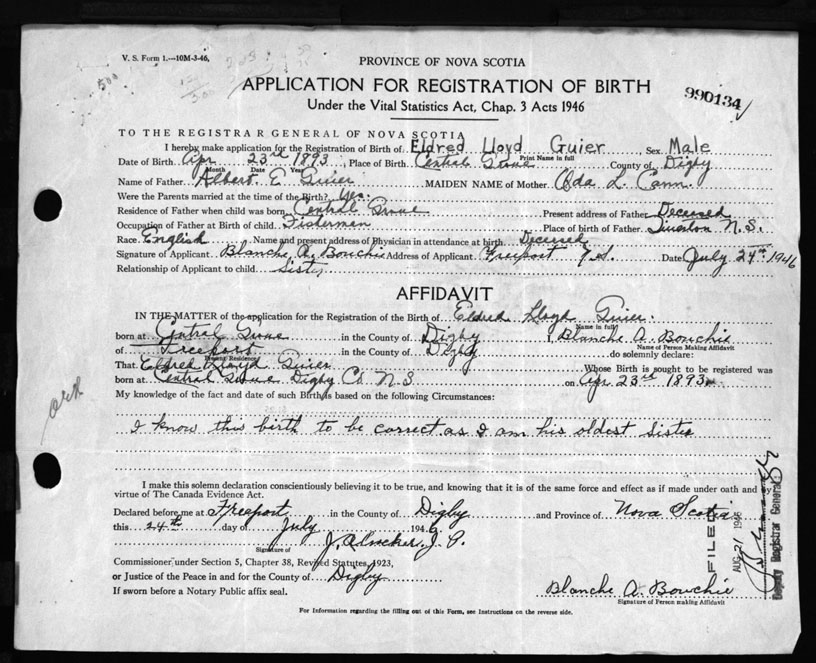 V. S. Form 1.—10M-3-46.
PROVINCE OF NOVA SCOTIA
APPLICATION FOR REGISTRATION OF BIRTH
990134
Under the Vital Statistics Act, Chap. 3 Acts 1946
TO THE REGISTRAR GENERAL OF NOVA SCOTIA
I hereby make application for the Registration of Birth of Eldred Lloyd Guier, Sex Male
Print Name in full
Date of Birth Apr 23rd 1893, Place of Birth Central Grove County of Digby
Month Date Year
Name of Father Albert E Guier MAIDEN NAME of Mother Ada L. Cann.
Were the Parents married at the time of the Birth? Yes.
Residence of Father when child was born Central Grove Present address of Father Deceased
Occupation of Father at Birth of child Fisherman Place of birth of Father Tiverton N.S.
Race English Name and present address of Physician in attendance at birth Deceased
Signature of Applicant Blanche A. Bouchie Address of Applicant Freeport N.S. Date July 24th 1946
Relationship of Applicant to child Sister
AFFIDAVIT
IN THE MATTER of the application for the Registration of the Birth of Eldred Lloyd Guier.
Name in full
born at Central Grove in the County of Digby I, Blanche A. Bouchie
Name of Person Making Affidavit
of Freeport in the County of Digby do solemnly declare:
Present Residence
That Eldred Lloyd Guier Whose Birth is sought to be registered was
born at Central Grove Digby Co. N.S. on Apr 23rd 1893
My knowledge of the fact and date of such Birth is based on the following Circumstances:
ork
I know this birth to be correct as I am his oldest Sister
I make this solemn declaration conscientiously believing it to be true, and knowing that it is of the same force and effect as if made under oath and by
virtue of The Canada Evidence Act.
Declared before me at Freeport in the County of Digby and Province of Nova Scotia
this 24th day of July 1946
Signature of J. P.
Commissioner under Section 5, Chapter 38, Revised Statutes, 1923,
or Justice of the Peace in and for the County of Digby
If sworn before a Notary Public affix seal.
Blanche A. Bouchie
Signature of Person making Affidavit
For Information regarding the filling out of this Form, see Instructions on the reverse side.
FILED
AUG 21 1946
Deputy Registrar General